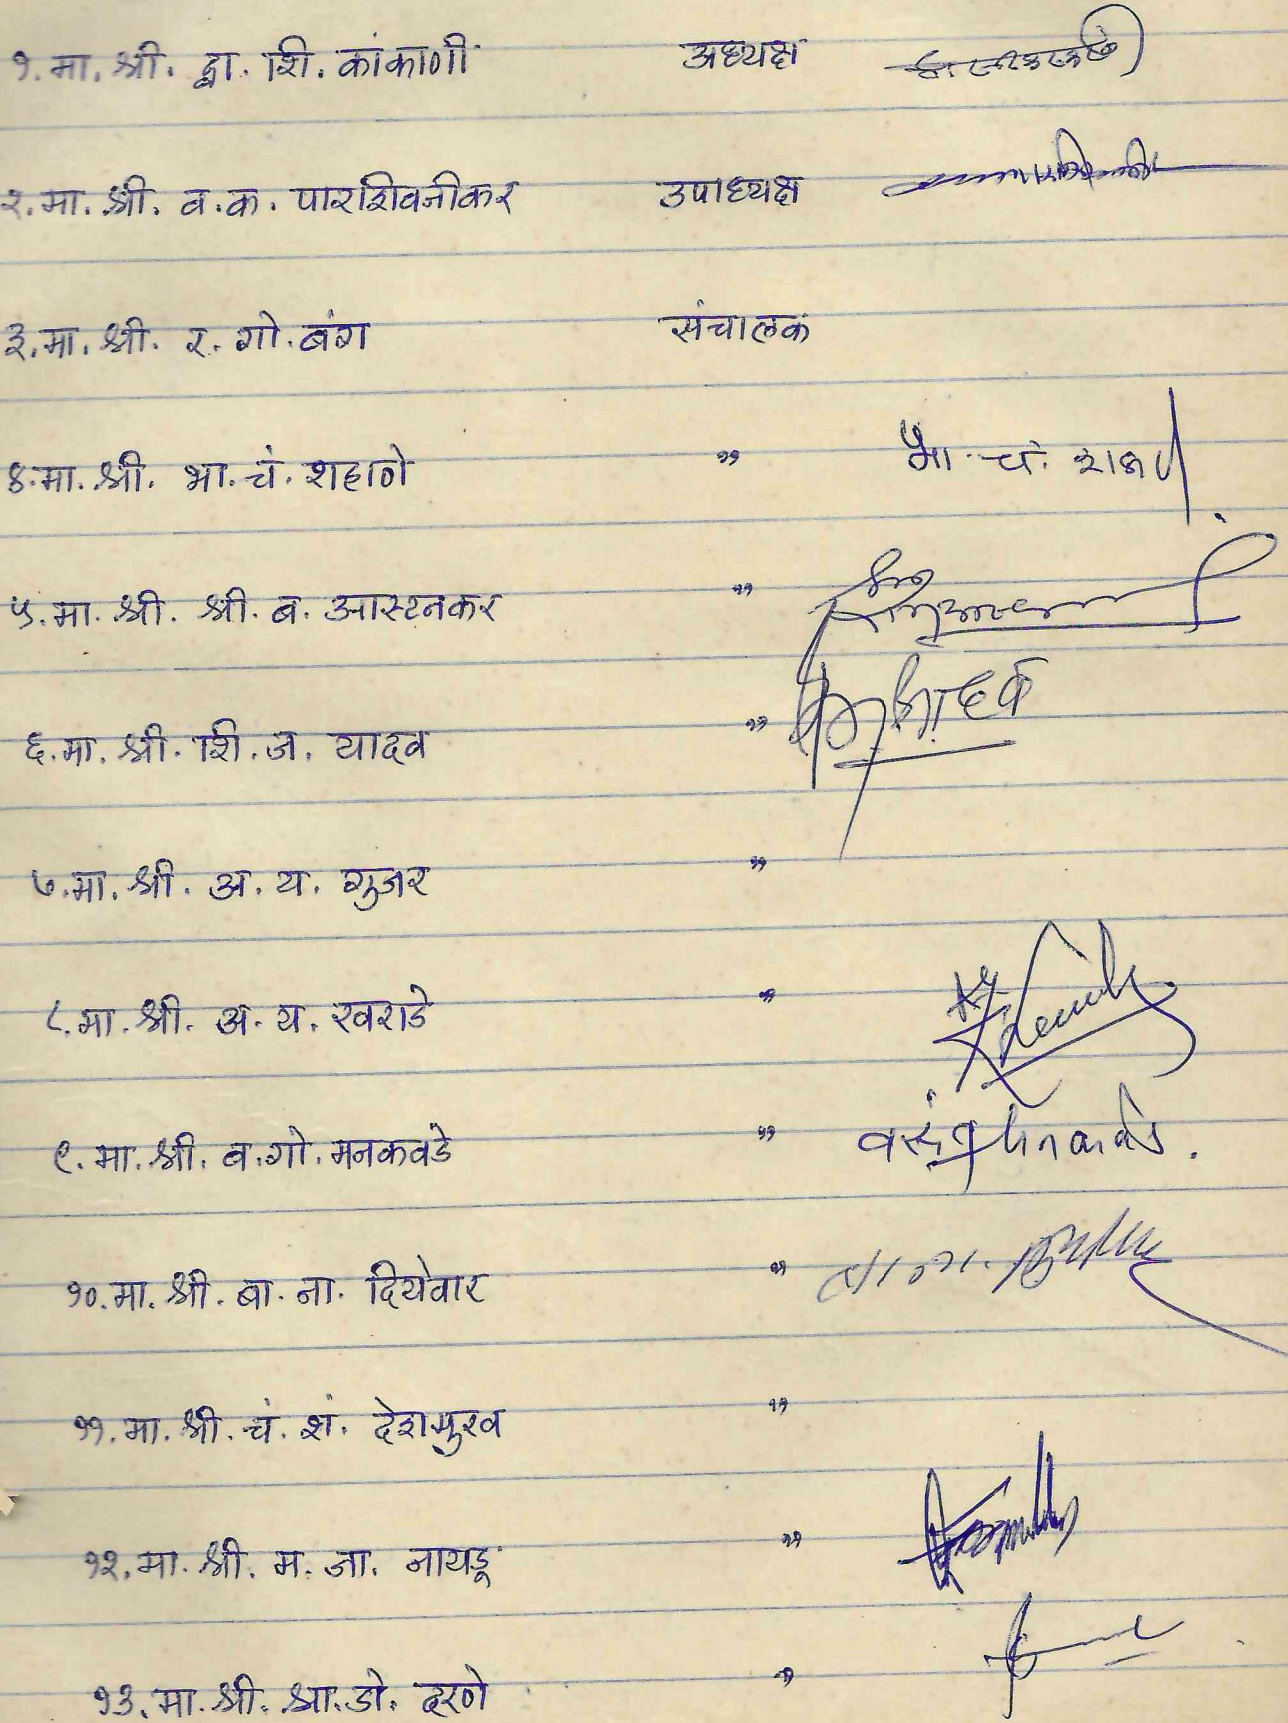 १. मा. श्री. द्वा. शि. कांकाणी अध्यक्ष
२. मा. श्री. व. क. पारशिवनीकर उपाध्यक्ष
३. मा. श्री. र. गो. बंग संचालक
४. मा. श्री. भा. चं. शहाणे " भा. चं.
५. मा. श्री. श्री. ब. आस्टनकर "
६. मा. श्री. शि. ज. यादव "
७. मा. श्री. अ. य. गुजर "
८. मा. श्री. अ. य. खराडे "
९. मा. श्री. व. गो. मनकवडे "
१०. मा. श्री. बा. ना. दियेवार "
११. मा. श्री. चं. शं. देशमुख "
१२. मा. श्री. म. जा. नायडू "
१३. मा. श्री. श्रा. डो. दरणे "